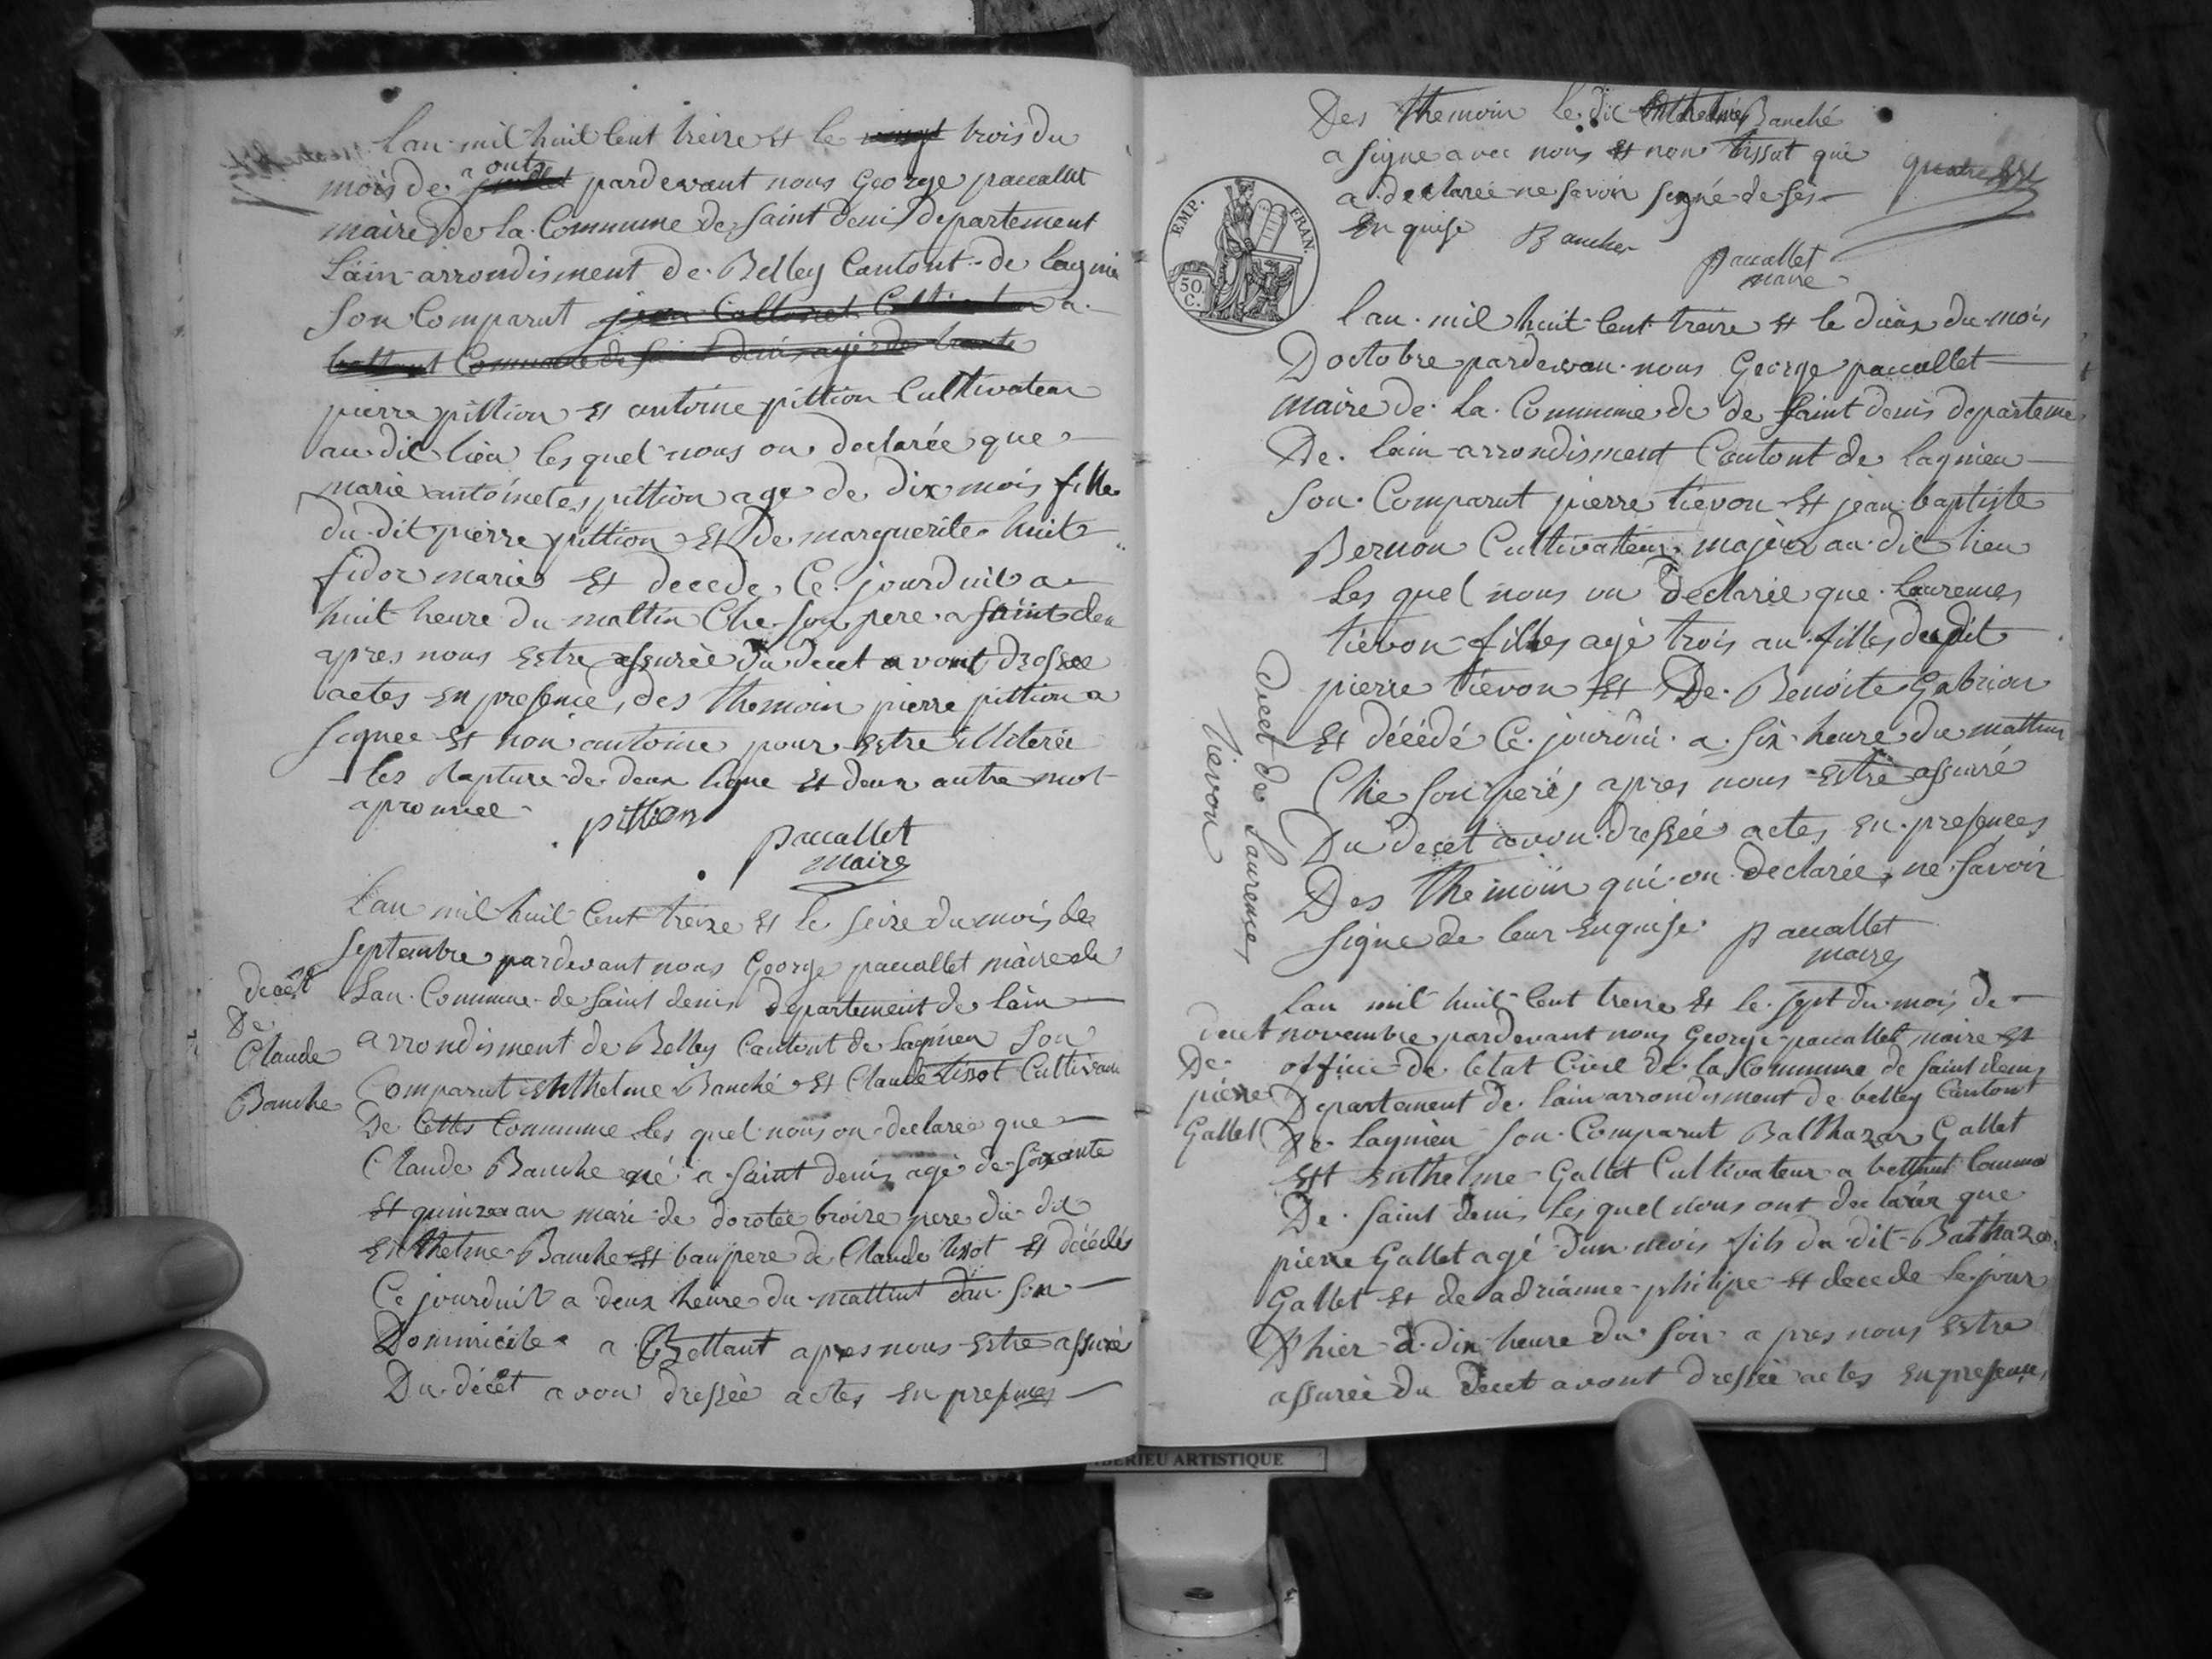 Lan mil huil Cent treize et le vingt trois du
mois de juillet aouts pardevant nous George pacallet
maire de la Commune de Saint denis departement
Lain arrondisment de Belley Cantont de lagnie
Son Comparut jean Collonet Cultivateur a
bettant Commune de Saint denis agé de trante
pierre pittion et antoine pittion Cultivateur
au dit lieu les quel nous on declarée que
marie antoinetes pittion age de dix mois fille
du dit pierre pittion et de marguerite huit
fidor mariés et decede Ce jourduit a
huit heure du mattin Che Son pere a Saint den
apres nous estre assurée du decet avont drossee
actes en presence des themoin pierre pittion a
Signee et non antoine pour estre illiterée
les Rapture de deux ligne et deux autre mot
aprouvee
pittion
pacallet
maire
Lan mil huil Cent treize et le seize du mois de
Septembre pardevant nous George pacallet maire de
Lau Commune de Saint denis departement de lain
arrondisment de Belley Cantont de Lagnieu Son
Comparut enthelme Banché et Claude tissot Cultivau
De Cettes Commune les quel nous on declaree que
Claude Banche né a Saint denis agé de Soixante
et quinze an mari de dorotée broire pere du dit
enthelme Banche et baupere de Claude tissot et décédés
Ce jourduit a deux heure du mattint dan Son
Dommicile a Bettant apres nous estre assuré
Du décêt avon dressée actes en presences
decêt
De
Claude
Banche
Des themoin le dit enthelme Banché
a Signe avec nous et non tissot que
a declarée ne Savoir Signé de Ses
en quise
Bancher
pacallet
maire
EMP. FRAN.
50 C.
Lan mil huit Cent treize et le dièx du mois
Doctobre pardevan nous George pacallet
maire de la Commune de de Saint denis departeme
De lain arrondisment Cantont de lagnieu
Son Comparut pierre tievon et jean baptiste
Bernon Cultivateur majeur au dit lieu
les quel nous on declarée que Laurences
tiévon filles agé trois an filles du dit
pierre tievon et De Benoite Gabrion
et décédé Ce jourdui a Six heure du mattin
Che Son perés apres nous estre assurré
Du decet avon dressée actes en presences
Des themoin qui on declarée ne Savoir
Signe de leur enquise
pacallet
maire
decet de Laurences
tievon
Lan mil huit Cent treize et le sept du mois de
novembre pardevant nous George pacallet maire et
officie de letat Civil de la Commune de Saint denis
Departement de lain arrondisment de belley Cantont
De Lagnieu Son Comparut Balthazar Gallet
ett enthelme Gallet Cultivateur a bettant Commu
De Saint denis les quel nous ont declarér que
pierre Gallet agé dun mois fils du dit Bathazar
Gallet et de adrianne philipe et decede le jour
Dhier a dix heure du Soir apres nous estre
assurée du decet avont dressée actes en presences
decet
De
pierre
Gallet
BÉRIEU ARTISTIQUE